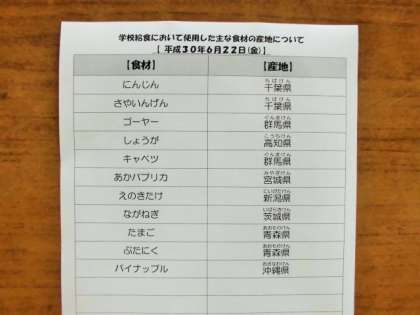 学校給食において使用した主な食材の産地について
【 平成30年6月22日(金) 】
【食材】 【産地】
にんじん 千葉県
さやいんげん 千葉県
ゴーヤー 群馬県
しょうが 高知県
キャベツ 群馬県
あかパプリカ 宮城県
えのきたけ 新潟県
ながねぎ 茨城県
たまご 青森県
ぶたにく 青森県
パイナップル 沖縄県